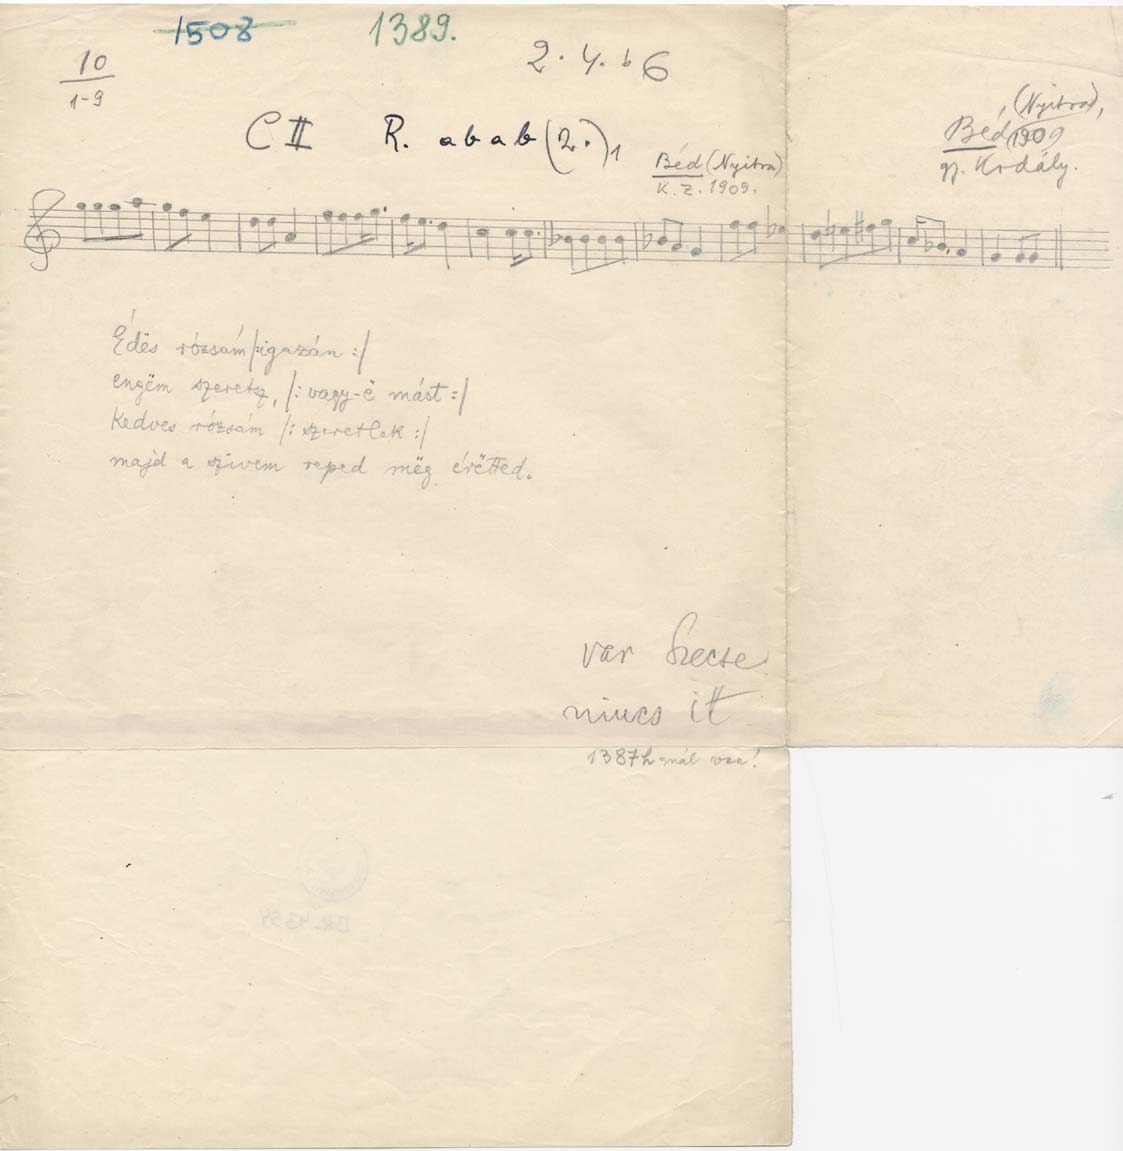 1508 1389.
10
1-9
2. 4. b 6
C II R. abab (2.) 1
Béd (Nyitra)
K. Z. 1909.
(Nyitra),
Béd 1909
gy. Kodály.
Édës rózsám /:igazán :/
engëm szeretsz, /: vagy-ë mást :/
Kedves rózsám /: szeretlek :/
majd a szivem reped mëg érëtted.
var Szecse
nincs itt
1387h-nál van!